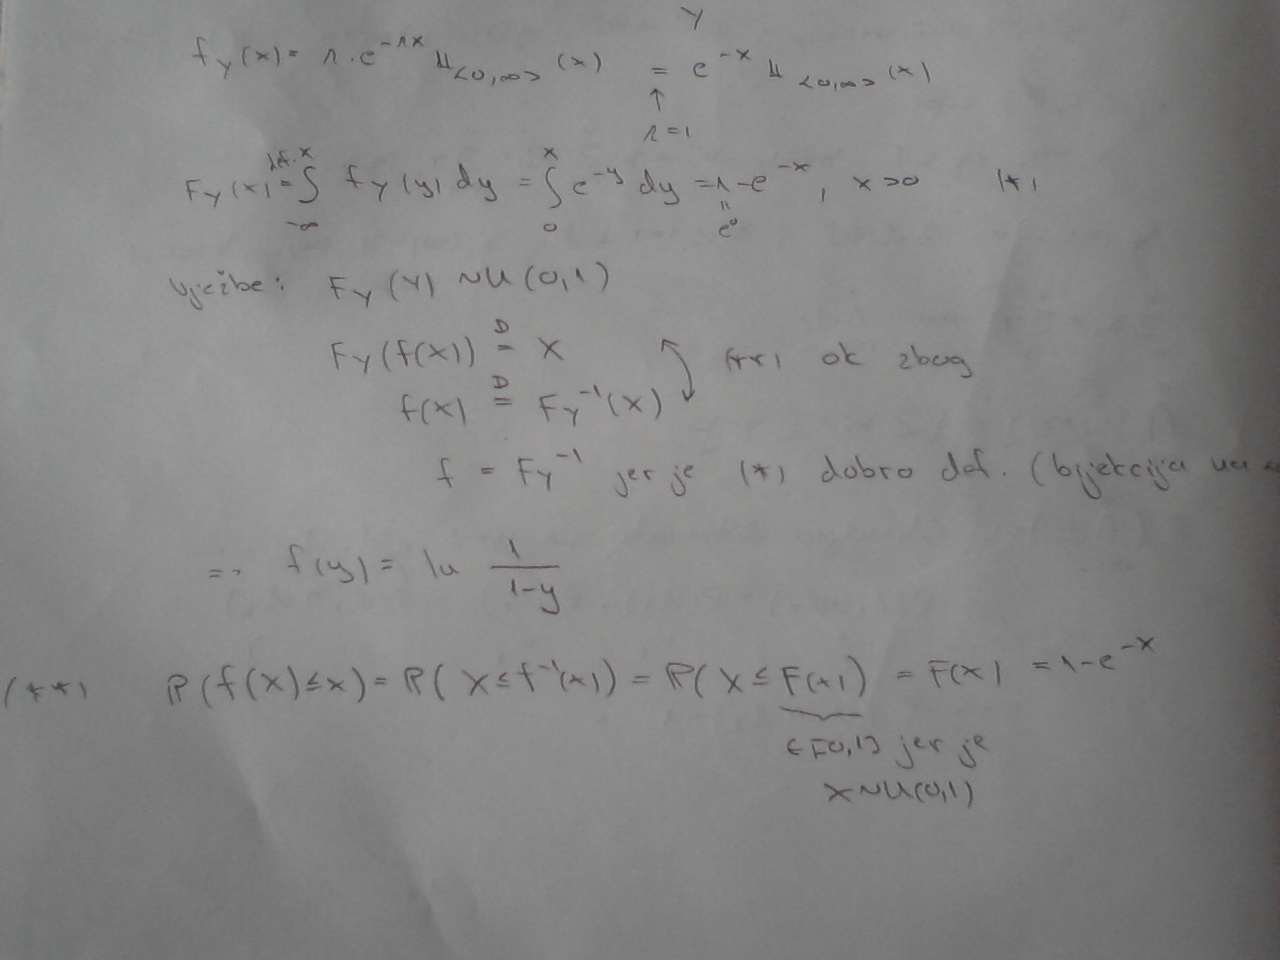 Y
f_Y(x) = λ · e^{-λx} 𝟙_{<0,∞>}(x) = e^{-x} 𝟙_{<0,∞>}(x)
↑
λ=1
F_Y(x) = ∫_{-∞}^{x} f_Y(y) dy = ∫_0^x e^{-y} dy = 1-e^{-x}, x>0 (*)
= e^0
Vježbe: F_Y(Y) ~ U(0,1)
F_Y(f(X)) =^D X
(**) ok zbog
f(X) =^D F_Y^{-1}(X)
f = F_Y^{-1} jer je (*) dobro def. (bijekcija na
=> f(y) = ln 1/(1-y)
(**) P(f(X)≤x) = P(X≤f^{-1}(x)) = P(X≤F(x)) = F(x) = 1-e^{-x}
∈[0,1] jer je
X~U(0,1)